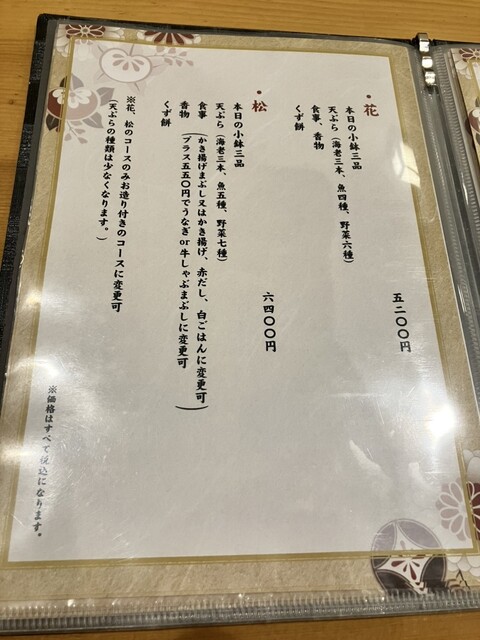 ・花
本日の小鉢三品
天ぷら（海老三本、魚四種、野菜六種）
食事、香物
くず餅
五二〇〇円
・松
本日の小鉢三品
天ぷら（海老三本、魚五種、野菜七種）
食事（かき揚げまぶし又はかき揚げ、赤だし、白ごはんに変更可
香物（プラス五五〇円でうなぎor牛しゃぶまぶしに変更可）
くず餅
六四〇〇円
※花、松のコースのみお造り付きのコースに変更可
（天ぷらの種類は少なくなります。）
※価格はすべて税込になります。